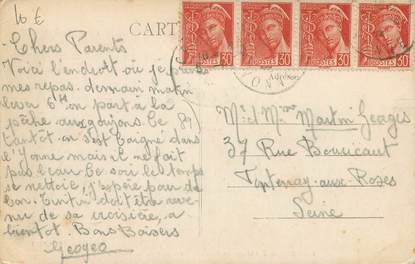 16 €
CARTE
Chers Parents
Voilà l'endroit où je prends
mes repas. demain matin
lever 6H on part à la
pêche aux goujons. Ce
tantôt on s'est baigné dans
l'Yonne mais il ne fait
pas beau. Ce soir le temps
se nettoie, j'espère pour de
bon. doit être
venu de sa croisière, a
bientot. Bons Baisers
Georges
30
30
30
30
POSTES
M. et Mme Martin Georges
37 Rue Boussicaut
Fontenay-aux-Roses
Seine